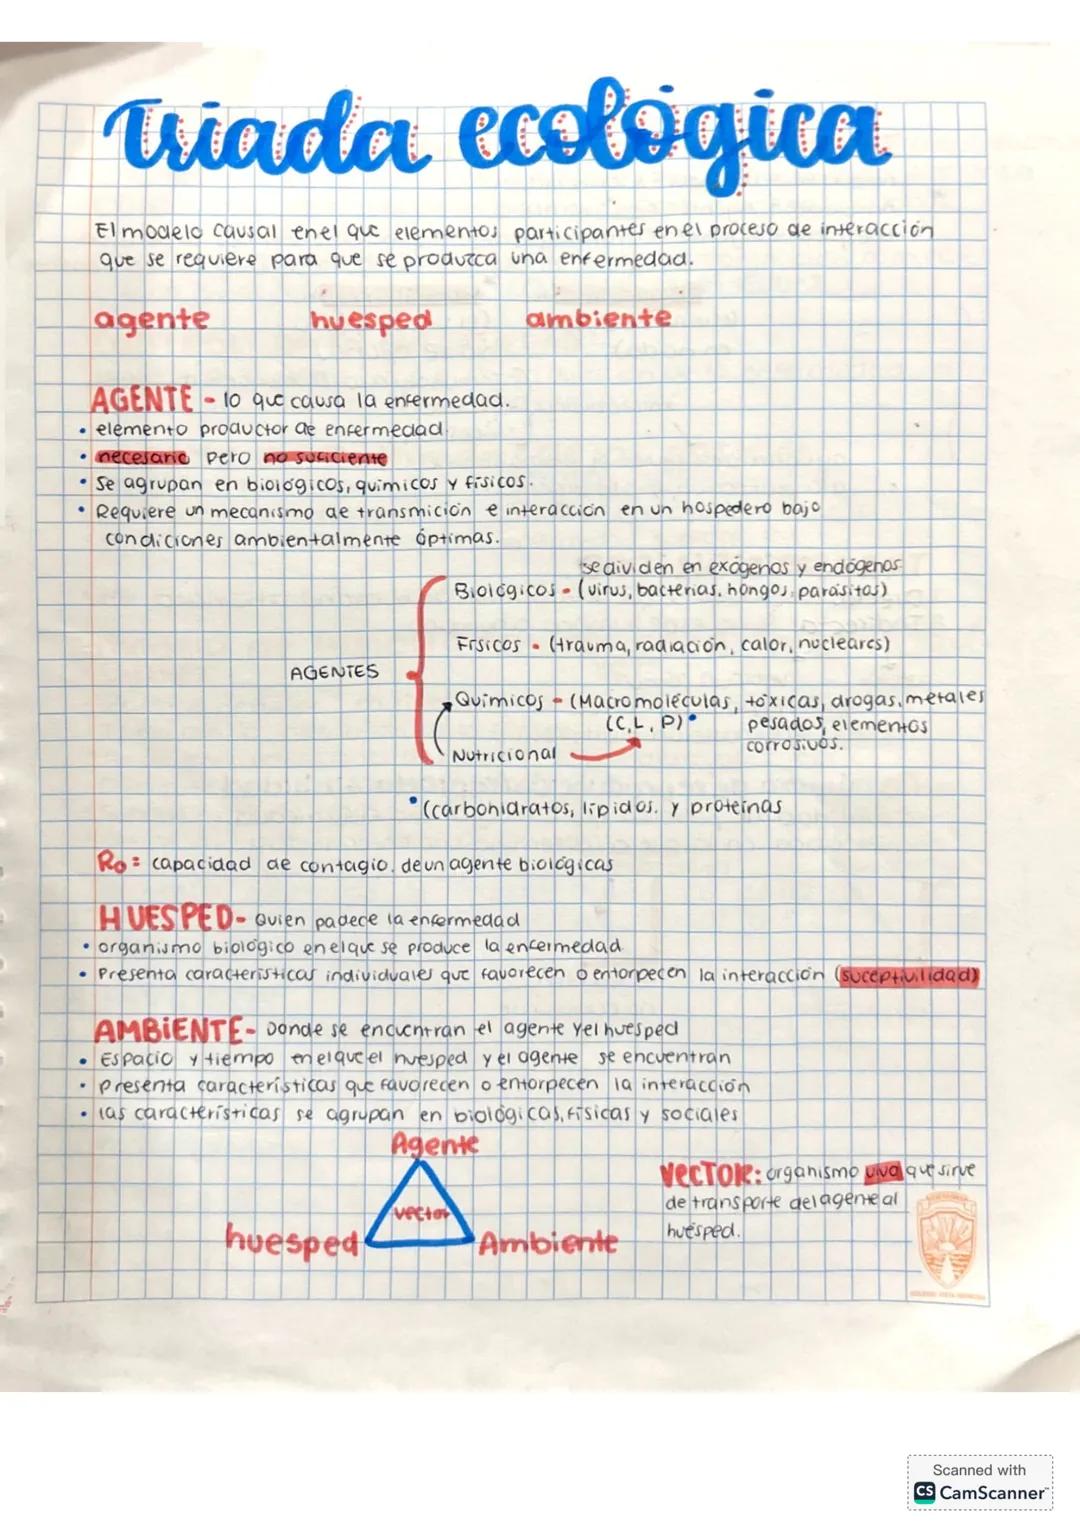 Triada ecológica
El modelo causal en el que elementos participantes en el proceso de interacción
que se requiere para que se produzca una enfermedad.
agente huesped ambiente
AGENTE - lo que causa la enfermedad.
• elemento productor de enfermedad
• necesario pero no suficiente
• Se agrupan en biológicos, químicos y físicos.
• Requiere un mecanismo de transmición e interacción en un hospedero bajo
condiciones ambientalmente óptimas.
se dividen en exógenos y endógenos
Biológicos - (virus, bacterias, hongos, parásitos)
Físicos - (trauma, radiación, calor, nucleares)
AGENTES
Químicos - (Macromoléculas, tóxicas, drogas, metales
(C, L, P)• pesados, elementos
corrosivos.
Nutricional
•(carbohidratos, lípidos. y proteínas
Ro: capacidad de contagio. de un agente biológicas
HUESPED - Quien padece la enfermedad
• organismo biológico en el que se produce la enfermedad
• Presenta características individuales que favorecen o entorpecen la interacción (suceptivilidad)
AMBiENTE - Donde se encuentran el agente y el huesped
• Espacio y tiempo en el que el huesped y el agente se encuentran
• presenta características que favorecen o entorpecen la interacción
• las características se agrupan en biológicas, físicas y sociales
Agente
vector
huesped Ambiente
VECTOR: organismo vivo que sirve
de transporte del agente al
huésped.
Scanned with
CS CamScanner